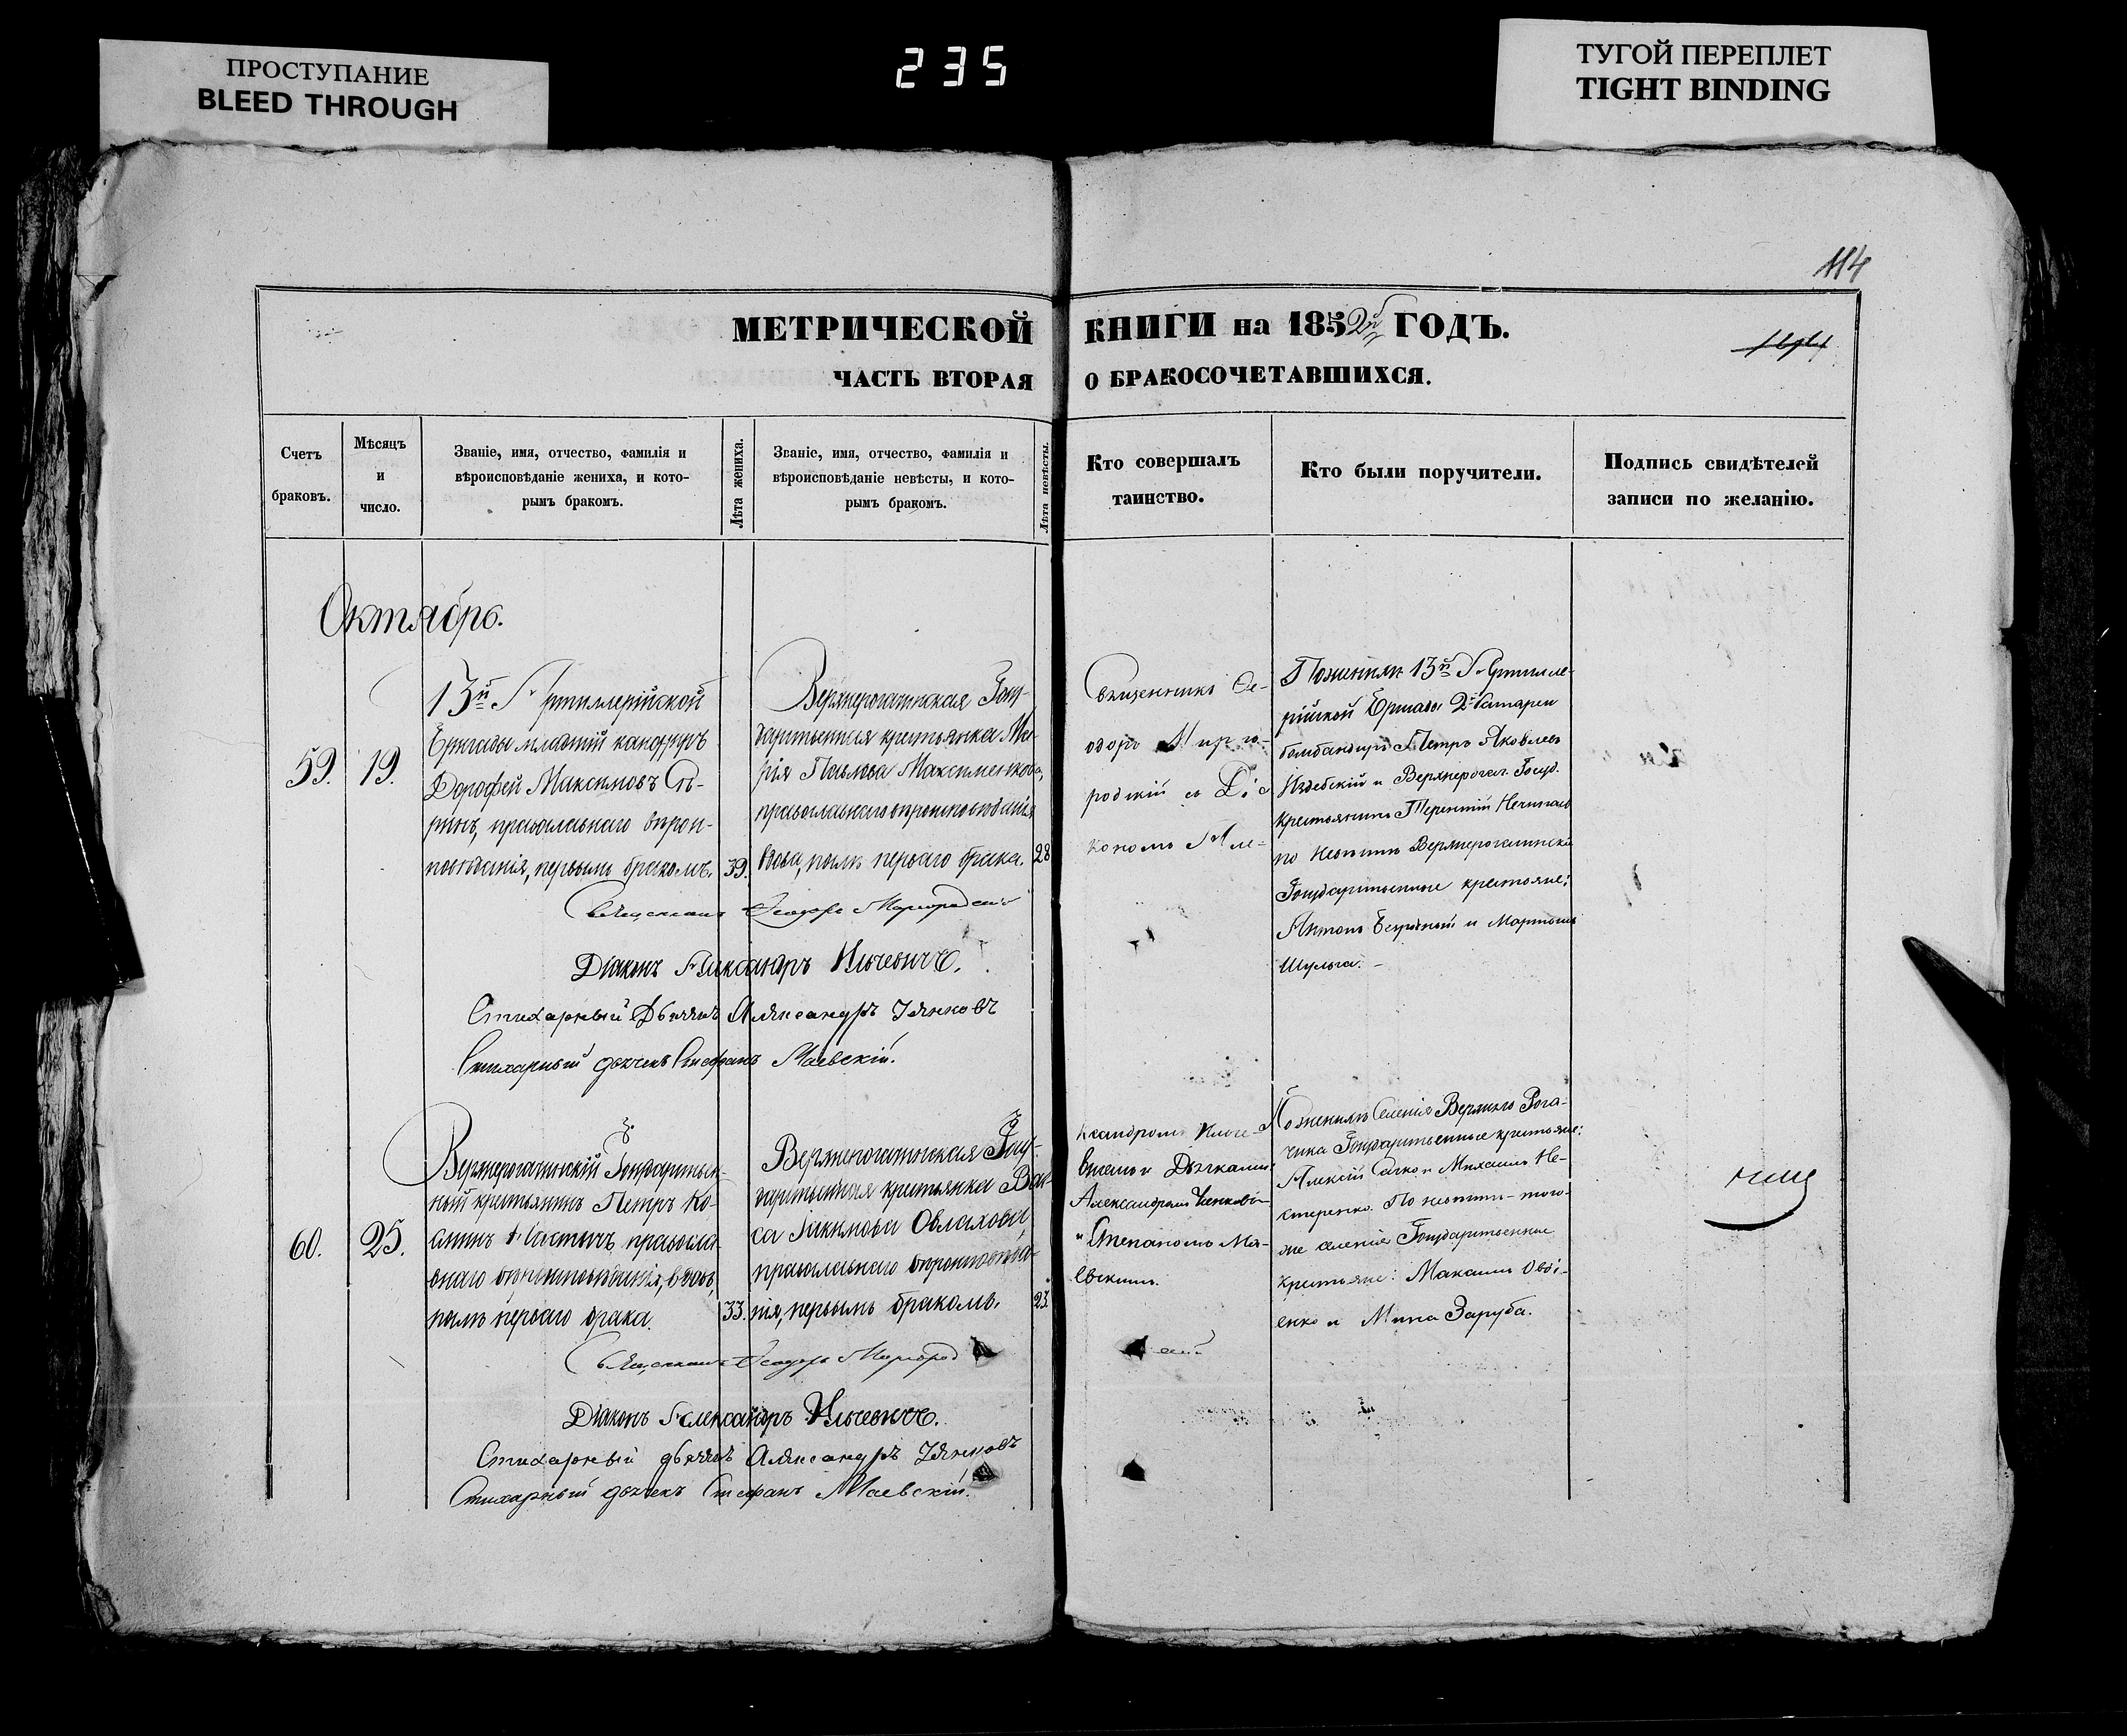 ПРОСТУПАНИЕ
BLEED THROUGH
235
ТУГОЙ ПЕРЕПЛЕТ
TIGHT BINDING
114
МЕТРИЧЕСКОЙ КНИГИ на 1852й ГОДЪ.
ЧАСТЬ ВТОРАЯ О БРАКОСОЧЕТАВШИХСЯ.
Счетъ
браковъ.
Мѣсяцъ
и
число.
Званіе, имя, отчество, фамилія и
вѣроисповѣданіе жениха, и кото-
рымъ бракомъ.
Лѣта жениха.
Званіе, имя, отчество, фамилія и
вѣроисповѣданіе невѣсты, и кото-
рымъ бракомъ.
Лѣта невѣсты.
Кто совершалъ
таинство.
Кто были поручители.
Подпись свидѣтелей
записи по желанію.
Октябрь.
59.
19.
13й Артиллерійской
Бригады младшій
Дорофей Максимовъ
православнаго вѣрои-
повѣданія, первымъ бракомъ.
39.
Верхнерогачикская Госу-
дарственная крестьянка Ма-
рія Павлова Максименкова,
православнаго вѣроисповѣданія
вдова, послѣ перваго брака.
28
Священникъ Ѳе-
одоръ Мирго-
родскій съ Діа
кономъ Але-
По женихѣ 13й Артилле-
рійской Бригады 2й батареи
бомбандиръ Петръ Яковлевъ
и Верхнерогач. Госуд.
крестьянинъ Терентій
по невѣстѣ Верхнерогачикскіе
Государственные крестьяне:
Антонъ и Мартынъ
Шульга.
Священникъ Ѳеодоръ Миргородскій
Діаконъ Александръ Ильчевичъ.
Стихарный Дьячекъ Александръ
Стихарный дьячекъ Стефанъ Маевскій.
60.
25.
Верхнерогачикскій Государствен-
ный крестьянинъ Петръ Ко-
православ-
наго вѣроисповѣданія, вдовъ,
послѣ перваго брака.
33.
Верхнерогачикская Госу-
дарственная крестьянка Вас-
са Іакимова Овлахова,
православнаго вѣроисповѣда-
нія, первымъ бракомъ.
23.
ксандромъ Ильче-
вичемъ и Дьячками:
Александромъ
и Степаномъ Ма-
евскимъ.
По женихѣ Селенія Верхняго Рога-
чика Государственные крестьяне:
Алексій и Михаилъ Не-
стеренко. По невѣстѣ – того-
же селенія Государственные
крестьяне: Максимъ
енко и Мина Заруба.
Священникъ Ѳеодоръ Миргород скій
Діаконъ Александръ Ильчевичъ.
Стихарный дьячекъ Александръ
Стихарный дьячекъ Стефанъ Маевскій.